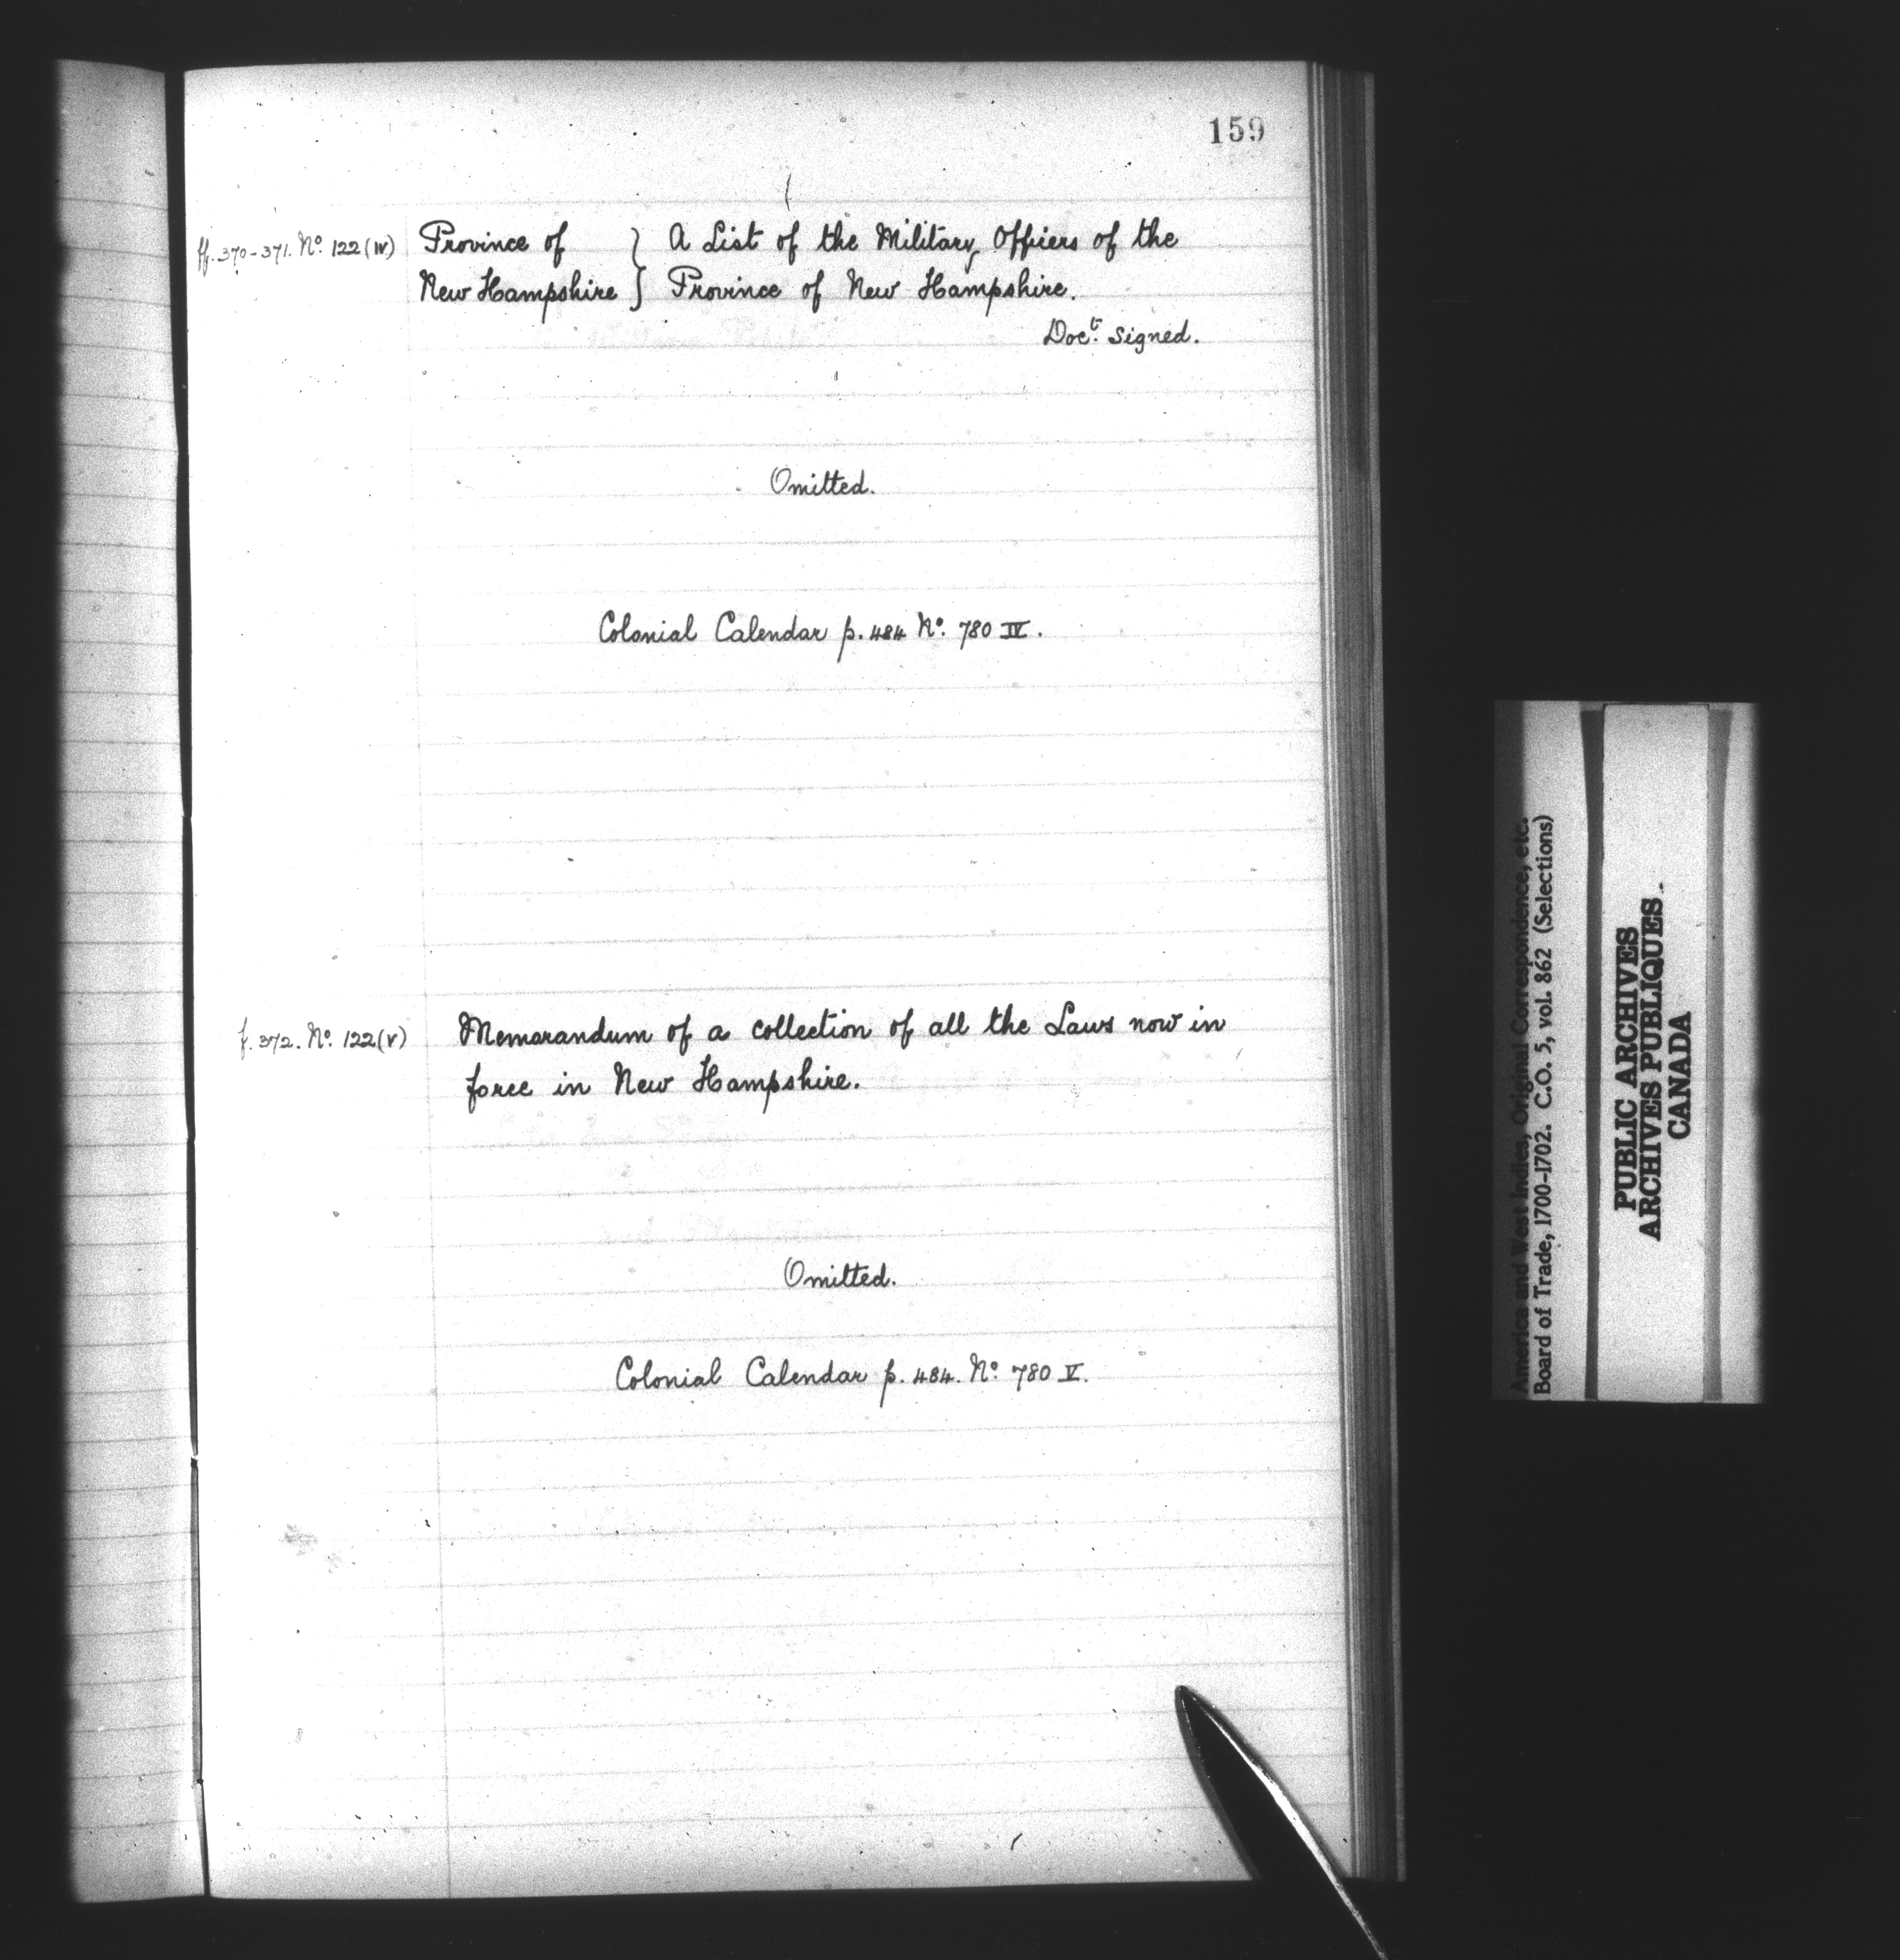 159
ff. 370-371. No. 122 (IV) Province of } A List of the Military Officers of the
New Hampshire } Province of New Hampshire.
Doct. signed.
Omitted.
Colonial Calendar p. 484 No. 780 IV.
f. 372. No. 122 (V) Memorandum of a collection of all the Laws now in
force in New Hampshire.
Omitted.
Colonial Calendar p. 484. No. 780 V.
America and West Indies, Original Correspondence, etc.
Board of Trade, 1700-1702. C.O. 5, vol. 862 (Selections)
PUBLIC ARCHIVES
ARCHIVES PUBLIQUES
CANADA